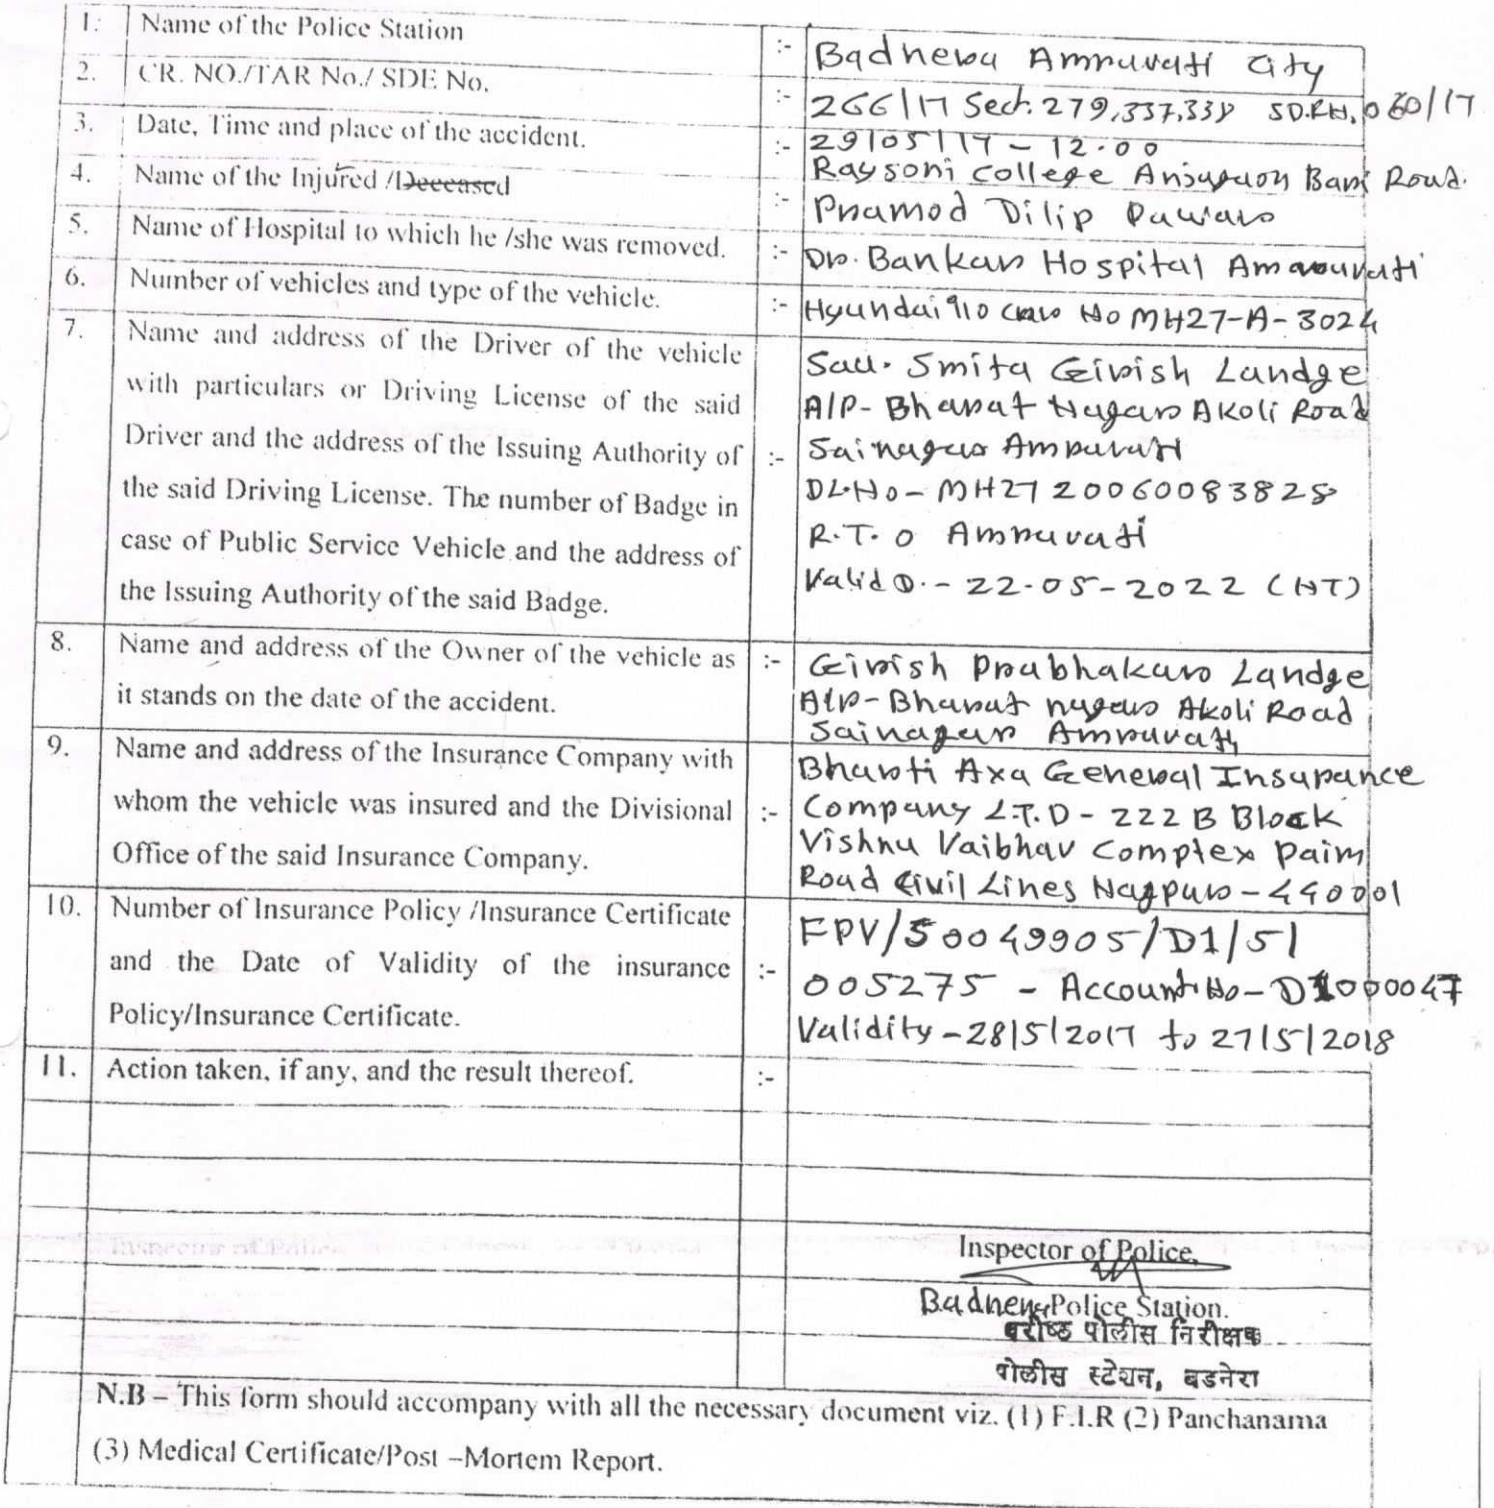 1. Name of the Police Station :- Badnera Amravati City
2. CR. NO./TAR No./ SDE No. :- 266/17 Sect. 279,337,338 SD.EN. 060/17
3. Date, Time and place of the accident. :- 29/05/17 - 12.00
Raysoni College Anjangaon Bari Road.
4. Name of the Injured /Deceased :- Pramod Dilip Pawar
5. Name of Hospital to which he /she was removed. :- Dr. Bankar Hospital Amaravati
6. Number of vehicles and type of the vehicle. :- Hyundai i10 car No MH27-A-3024
7. Name and address of the Driver of the vehicle
with particulars or Driving License of the said
Driver and the address of the Issuing Authority of :-
the said Driving License. The number of Badge in
case of Public Service Vehicle and the address of
the Issuing Authority of the said Badge.
Sau. Smita Girish Landge
A/P- Bharat Nagar Akoli Road
Sainagar Amravati
DL.No- MH27 20060083828
R.T.O Amravati
Valid D. - 22-05-2022 (NT)
8. Name and address of the Owner of the vehicle as :-
it stands on the date of the accident.
Girish Prabhakar Landge
A/P- Bharat nagar Akoli Road
Sainagar Amravati
9. Name and address of the Insurance Company with
whom the vehicle was insured and the Divisional :-
Office of the said Insurance Company.
Bharti Axa General Insurance
Company L.T.D - 222 B Block
Vishnu Vaibhav Complex Palm
Road Civil Lines Nagpur - 440001
10. Number of Insurance Policy /Insurance Certificate
and the Date of Validity of the insurance :-
Policy/Insurance Certificate.
FPV/50049905/D1/51
005275 - Account No- D1000047
Validity - 28/5/2017 to 27/5/2018
11. Action taken, if any, and the result thereof. :-
Inspector of Police,
Badnera Police Station.
वरीष्ठ पोलीस निरीक्षक
पोलीस स्टेशन, बडनेरा
N.B – This form should accompany with all the necessary document viz. (1) F.I.R (2) Panchanama
(3) Medical Certificate/Post –Mortem Report.